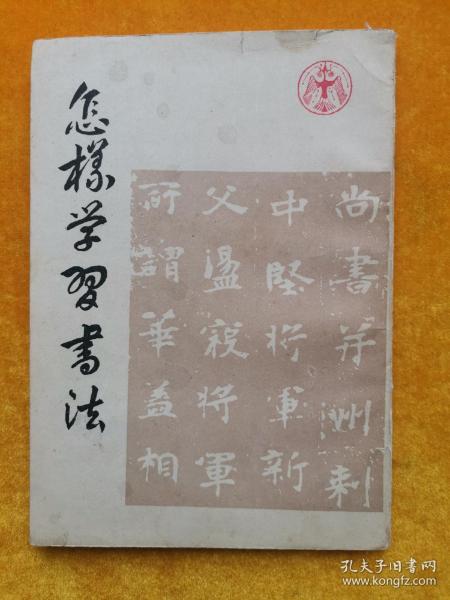 怎樣学習書法
尚書并州刺
中堅将軍新
父盪寇将軍
所謂華蓋相
孔夫子旧书网
www.kongfz.com